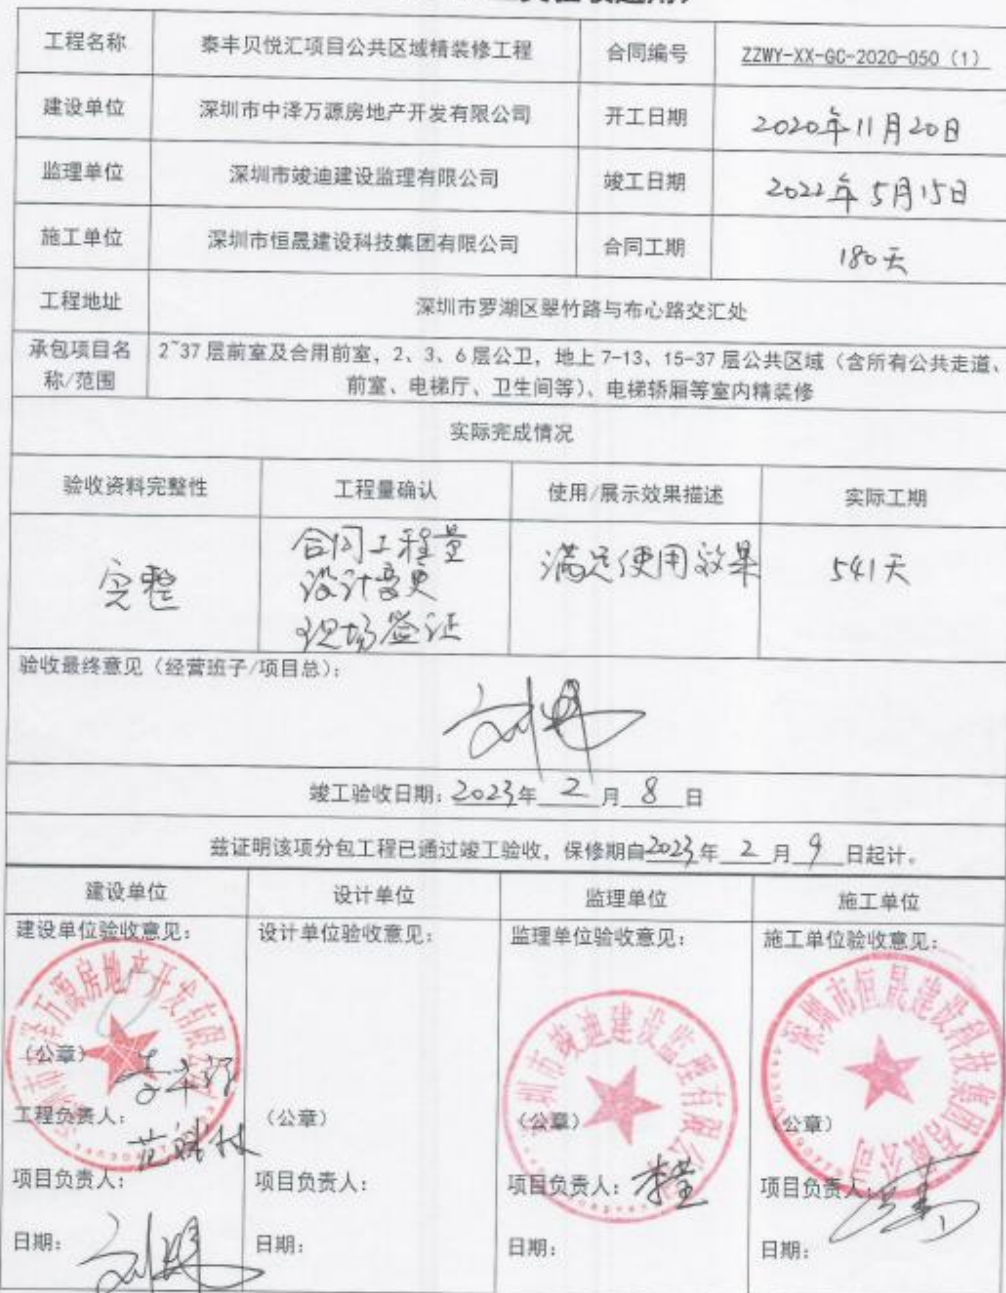 工程名称 泰丰贝悦汇项目公共区域精装修工程 合同编号 ZZWY-XX-GC-2020-050（1）
建设单位 深圳市中泽万源房地产开发有限公司 开工日期 2020年11月20日
监理单位 深圳市竣迪建设监理有限公司 竣工日期 2022年5月15日
施工单位 深圳市恒晟建设科技集团有限公司 合同工期 180天
工程地址 深圳市罗湖区翠竹路与布心路交汇处
承包项目名 2~37层前室及合用前室，2、3、6层公卫，地上7-13、15-37层公共区域（含所有公共走道、
称/范围 前室、电梯厅、卫生间等）、电梯轿厢等室内精装修
实际完成情况
验收资料完整性 工程量确认 使用/展示效果描述 实际工期
完整 合同工程量 满足使用效果 541天
设计变更
现场签证
验收最终意见（经营班子/项目总）：
竣工验收日期：2023年2月8日
兹证明该项分包工程已通过竣工验收，保修期自2023年2月9日起计。
建设单位 设计单位 监理单位 施工单位
建设单位验收意见： 设计单位验收意见： 监理单位验收意见： 施工单位验收意见：
（公章） （公章） （公章） （公章）
工程负责人：
项目负责人： 项目负责人： 项目负责人： 项目负责人：
日期： 日期： 日期： 日期：
深圳市竣迪建设监理有限公司
深圳市恒晟建设科技集团有限公司